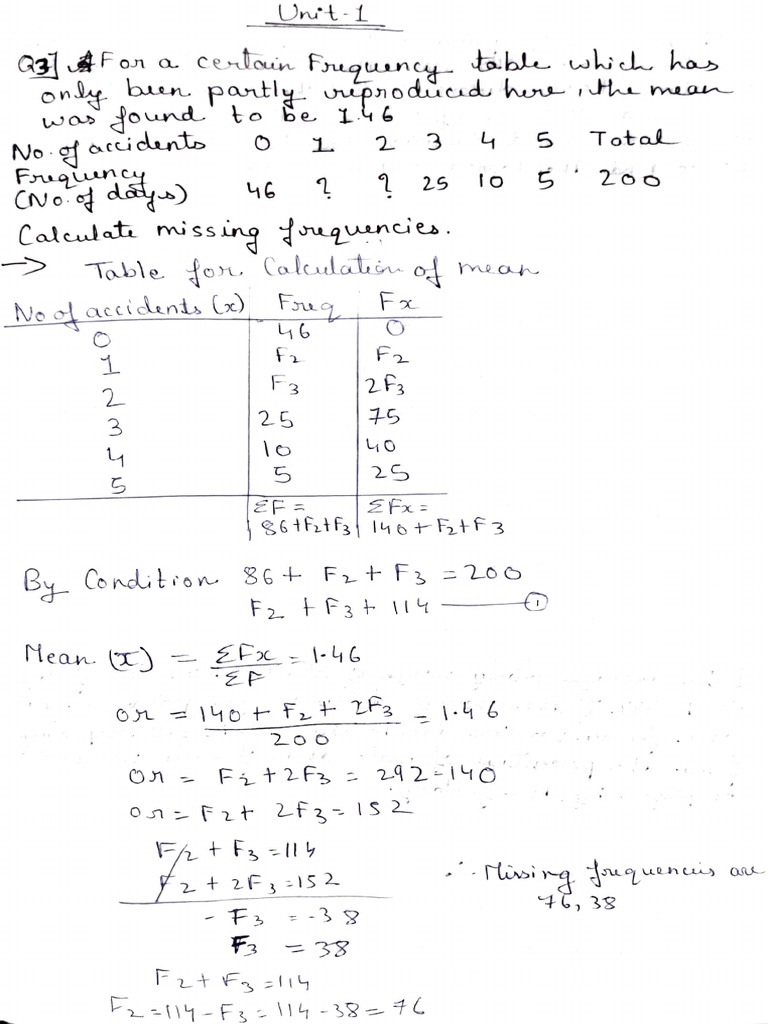 Unit-1
Q3] For a certain Frequency table which has
only been partly reproduced here, the mean
was found to be 1.46
No. of accidents 0 1 2 3 4 5 Total
Frequency
(No. of days) 46 ? ? 25 10 5 200
Calculate missing frequencies.
→ Table for Calculation of mean
No of accidents (x) Freq Fx
0 46 0
1 F2 F2
2 F3 2F3
3 25 75
4 10 40
5 5 25
ΣF = ΣFx =
86+F2+F3 140+F2+F3
By Condition 86 + F2 + F3 = 200
F2 + F3 + 114 ——— ①
Mean (x̄) = ΣFx/ΣF = 1.46
or = 140 + F2 + 2F3 = 1.46
200
or = F2 + 2F3 = 292-140
or = F2 + 2F3 = 152
F2 + F3 = 114
F2 + 2F3 = 152
- F3 = -38
F3 = 38
∴ Missing frequencies are
76, 38
F2 + F3 = 114
F2 = 114 - F3 = 114 - 38 = 76